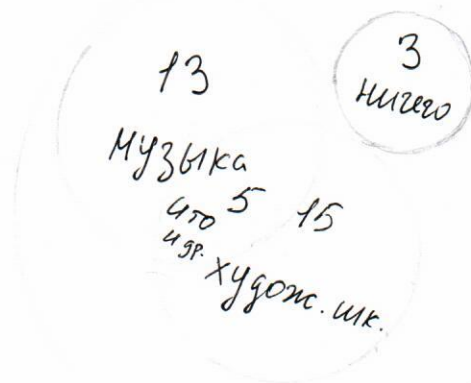 13
3
ничего
музыка
что 5 15
и др.
худож. шк.